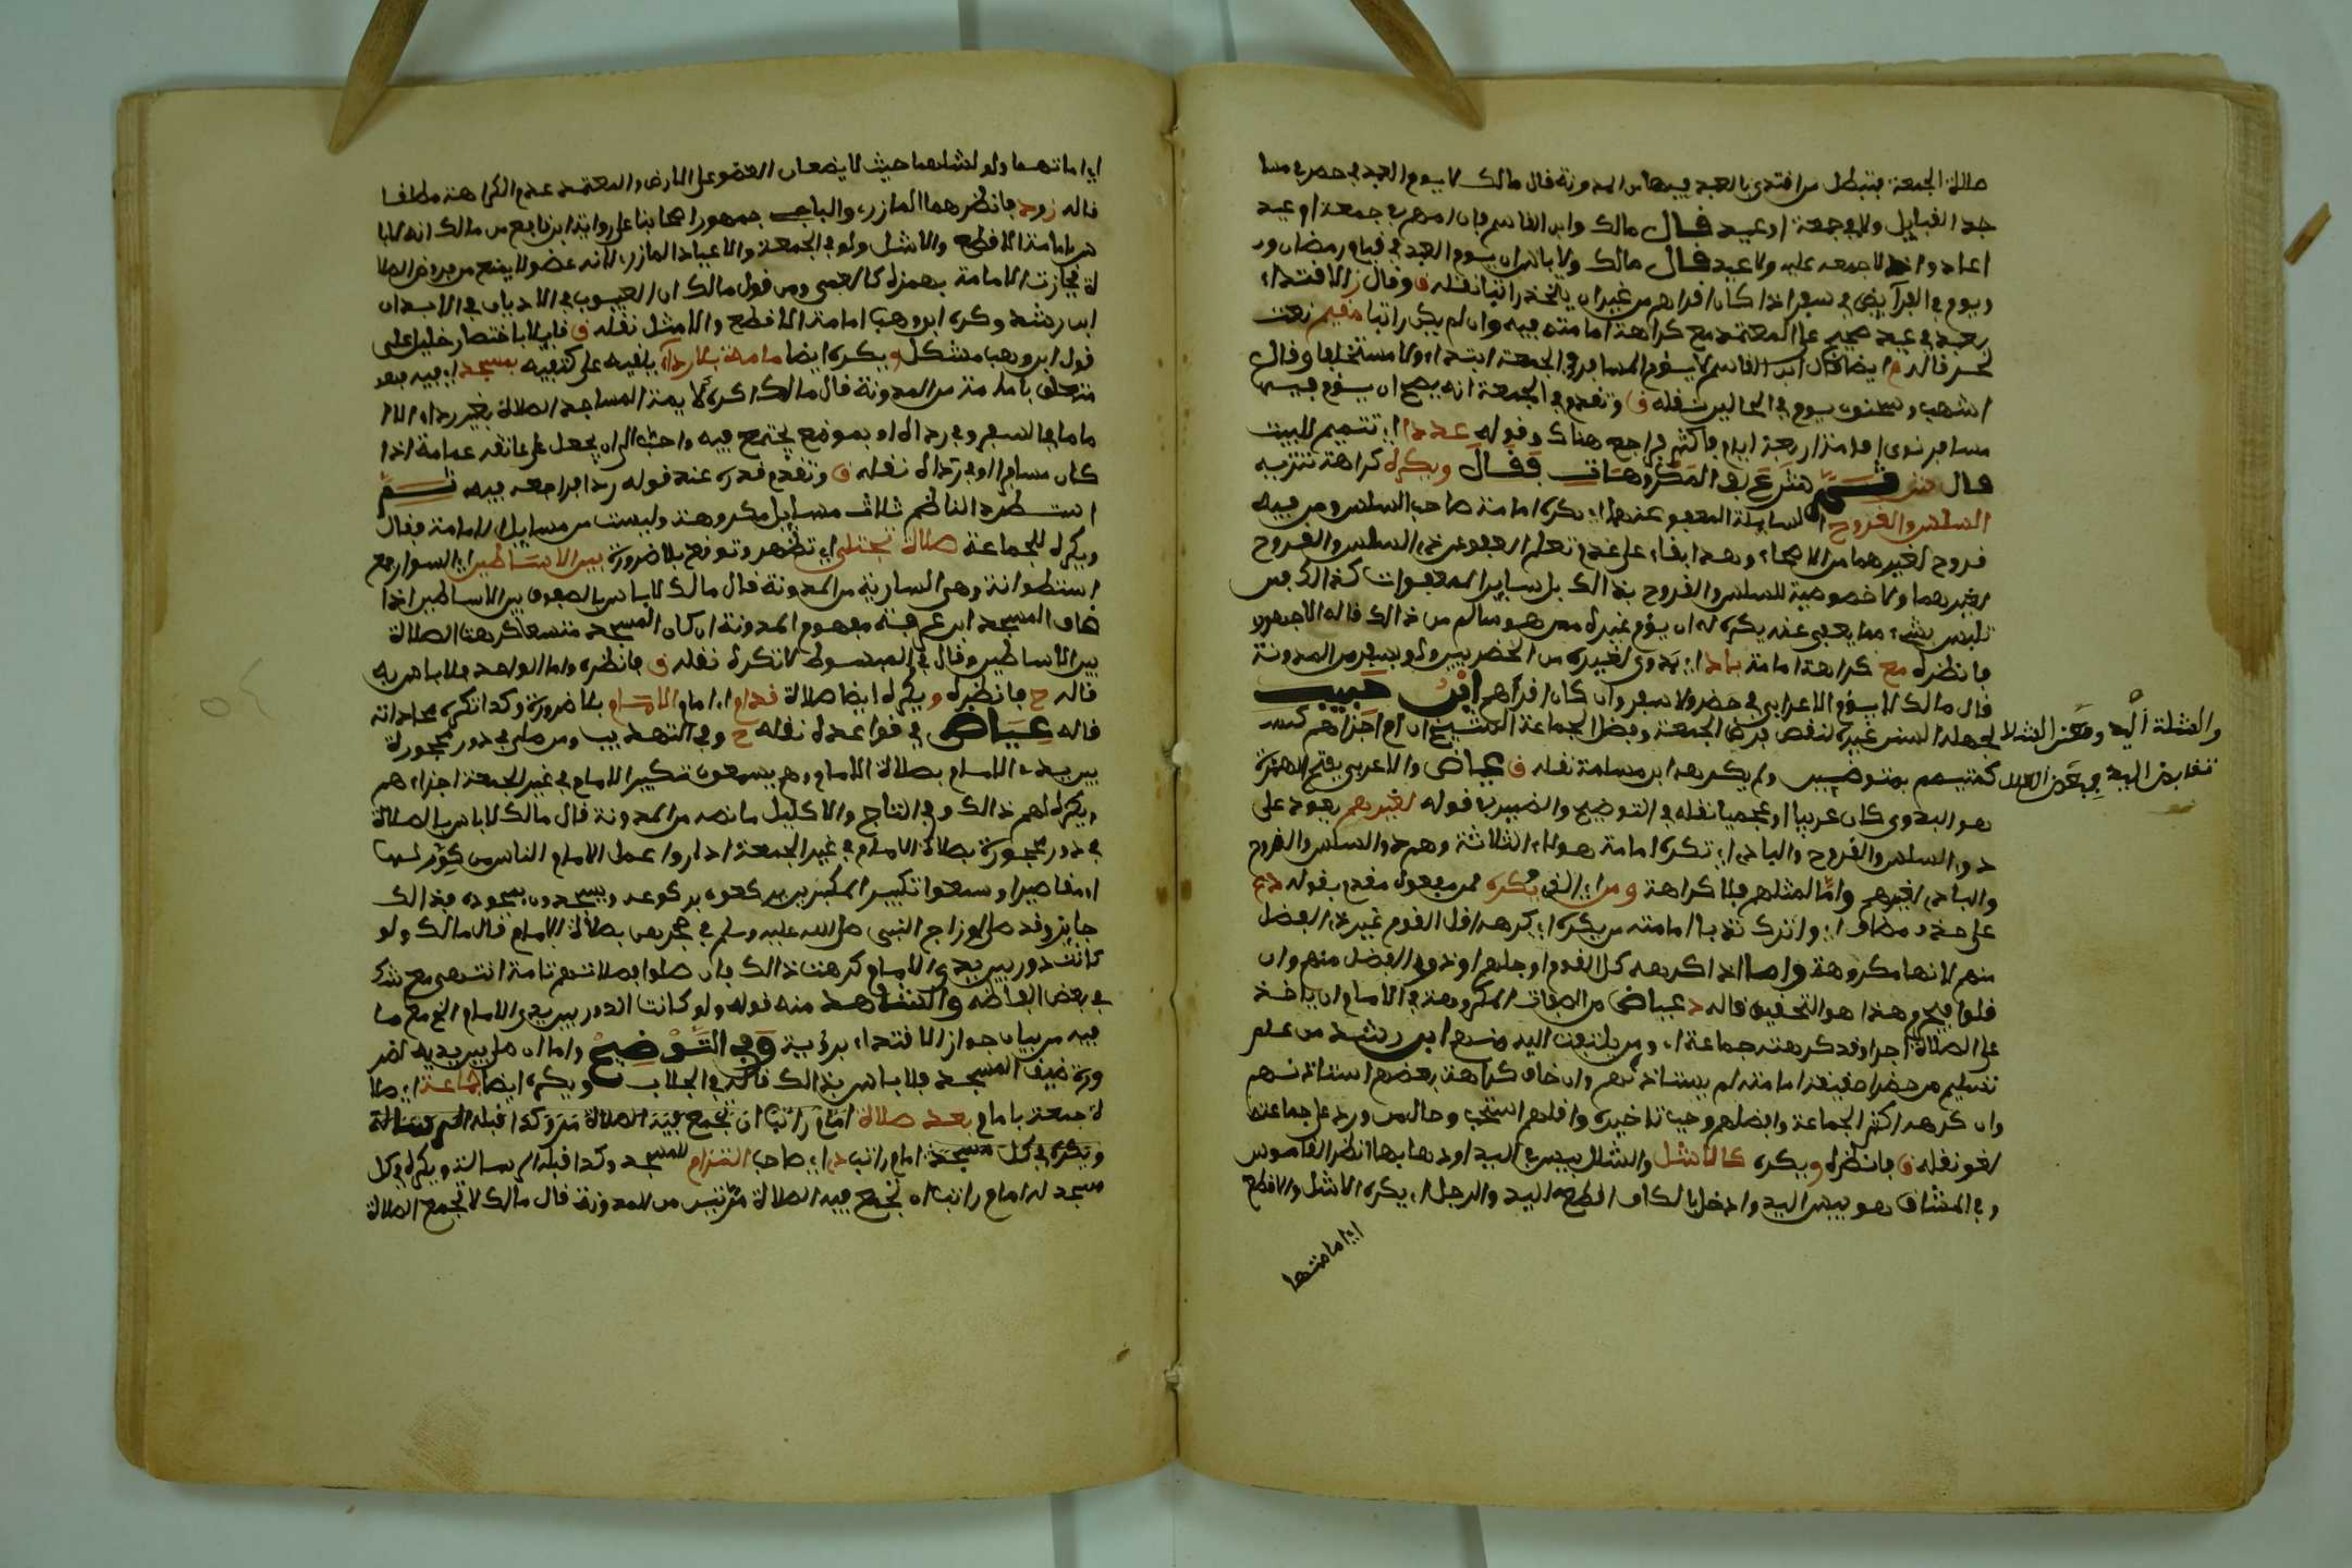 صلاة الجمعة فتبطل من اقتدى بالعبد فيها من المدونة قال مالك لا يوم العبد في حضر في مسا
جد القبايل ولا في جمعة او عيد قال مالك وابن القاسم فان امهم في جمعة او عيد
اعاد واذ لا جمعه عليه ولا عيد قال مالك ولا باس ان يوم العبد في قيام رمضان و
ويوم في الفرآيض في سفر اذا كان اقراهم من غير ان يتخذ راتبا نقله ق وقال ز الاقتداء
بعبد في عيد صحيح على المعتمد مع كراهة امامته فيه وان لم يكن راتبا مقيم نعت
لحر قاله م ايضا قال ابن القاسم لا يوم المسافر في الجمعة ابتداء ولا مستخلفا وقال
اشهب وسحنون يوم في الحالين نقله ق وتقدم في الجمعة انه يصح ان يوم فيها
مسافر نوى اقامة اربعة ايام فاكثر فراجعه هناك وقوله عددا اي تتميم للبيت
قال ثم شرع في المكروهات فقال ويكره كراهة تنزيه
السلس والقروح اي السايلة المعفو عنها اي يكره امامة صاحب السلس ومن فيه
قروح لغيرهما من الاصحاء وهذا بناء على عدم تعلم العفو عن ذي السلس والقروح
لغيرهما ولا خصوصية للسلس والقروح بذالك بل ساير المعفوات كذالك فمن
تلبس بشيء مما يعفى عنه يكره له ان يؤم غيره ممن هو سالم من ذالك قاله الاجهوري
فانظره مع كراهة امامة باد اي بدوي لغيره من الحضريين ولو بسفر من المدونة
قال مالك لا يؤم الاعرابي في حضر ولا سفر وان كان اقراهم ابن حبيب
لجهله السنن غيره لنقص فرض الجمعة وفضل الجماعة الشيخ ان ام اجزاهم كسـ
كمتيمم بمتوضيين ولم يكرهه ابن مسلمة نقله ق عياض والاعربي بفتح الهمزة
هو البدوي كان عربيا او عجميا نقله في التوضيح والضمير في قوله لغيرهم يعود على
ذو السلس والقروح والبادي اي تكره امامة هولاء الثلاثة وهم ذو السلس والقروح
والبادي لغيرهم واما لمثلهم فلا كراهة ومن اي الذي يكره مفعول مقدم بقوله دع
على حذف مضاف اي واترك ندبا امامته من يكره اي كرهه اقل القوم غير ذي الفضل
منهم لانها مكروهة واما اذا كرهه كل القوم او جلهم او ذوي الفضل منهم وان
قلوا فيحرم هذا هو التحقيق قاله د عياض من الصفات المكروهة في الامام ان ياخذ
على الصلاة اجرا وقد كرهته جماعة او من يلتفت اليه منهم ابن رشد من علم
تسليم من حضر احقيقة امامته لم يستاذنهم وان خاف كراهة بعضهم استاذنهم
وان كرهه اكثر الجماعة وافضلهم وجب تاخيره واقلهم استحب وحال من ورد على جماعته
لغو نقله ق فانظره ويكره كالاشل والشلل يبس في اليد او ذهابها انظر القاموس
وفي المشارق هو يبس اليد وادخل بالكاف اقطع اليد والرجل اي يكره الاشل والاقطع
اي امامتهما
والشلة اليد
اي امامتهما ولو لمثلهما حيث لا يضعان العضو على الارض والمعتمد عدم الكراهة مطلقا
قاله ز ود فانظرهما المازري والباجي جمهور اصحابنا على رواية ابن نافع عن مالك انه لا با
س بامامة الاقطع والاشل ولو في الجمعة والاعياد المازري لانه عضو لا يمنع من فروض الصلا
ة فجازت الامامة بهمزه كالعمى ومن قول مالك ان العيوب في الاديان لا في الابدان
ابن رشد وكره ابن وهب امامة الاقطع والاشل نقله ق قايلا باختصار خليل على
قول ابن وهب مشكل ويكره ايضا امامة بلا رداء يلقيه على كتفيه بمسجد اي فيه
متعلق بامامة من المدونة قال مالك اكره لايمة المساجد الصلاة بغير رداء الا ا
ماما في السفر وفي رداه او بموضع يجتمع فيه واحب الي ان يجعل على عاتقه عمامة اذا
كان مسافرا او في داره نقله ق وتقدم قدره عند قوله ردا فراجعه فيه ثم
استطرد الناظم ثلاث مسايل مكروهة وليست من مسايل الامامة فقال
ويكره للجماعة صلاة تجتلى اي تظهر وتوقع بلا ضرورة بين الاساطين اي السوار جمع
اسطوانة وهي السارية من المدونة قال مالك لا باس بالصفوف بين الاساطين اذا
ضاق المسجد ابن عرفة مفهوم المدونة ان كان المسجد متسعا كرهت الصلاة
بين الاساطين وقال في المبسوط لا تكره نقله ق فانظره واما الواحد فلا باس به
قاله ح فانظره ويكره ايضا صلاة قدام امام الامام بلا ضرورة وكذا تكره محاذاته
قاله عياض في قواعده نقله ح وفي التهذيب ومن صلى في دور محجورة
بين يدي الامام بصلاة الامام وهم يسمعون تكبير الامام في غير الجمعة اجزاءهم
ويكره لهم ذالك وفي التاج والاكليل ما نصه من المدونة قال مالك لا باس بالصلاة
في دور محجورة بصلاة الامام في غير الجمعة اذا راوا عمل الامام الناس من كوى لها
او مقاصير او سمعوا تكبير المكبرين يركعون بركوعه ويسجدون بسجوده فذالك
جايز وقد صلى ازواج النبي صلى الله عليه وسلم في حجرهن بصلاة الامام قال مالك ولو
كانت دور بين يدي الامام كرهت ذالك فان صلوا فصلاتهم تامة انتهى مع شك
في بعض الفاظه والشاهد منه قوله ولو كانت الدور بين يدي الامام الخ مع ما
فيه من بيان جواز الاقتداء برؤية وفي التوضيح واما ان صلى بين يديه لضر
ورة ضيق المسجد فلا باس بذالك قاله في الجلاب ويكره ايضا جماعة اي صلا
ة جمعة بامام بعد صلاة امام راتبا ان تجمع فيه الصلاة مرتين وكذا قبله
ويكره في كل مسجد امام راتب ذا اي صاحب التزام للمسجد وكذا قبله الرسالة ويكره في كل
مسجد له امام راتب ان تجمع فيه الصلاة مرتين من المدونة قال مالك لا تجمع الصلاة